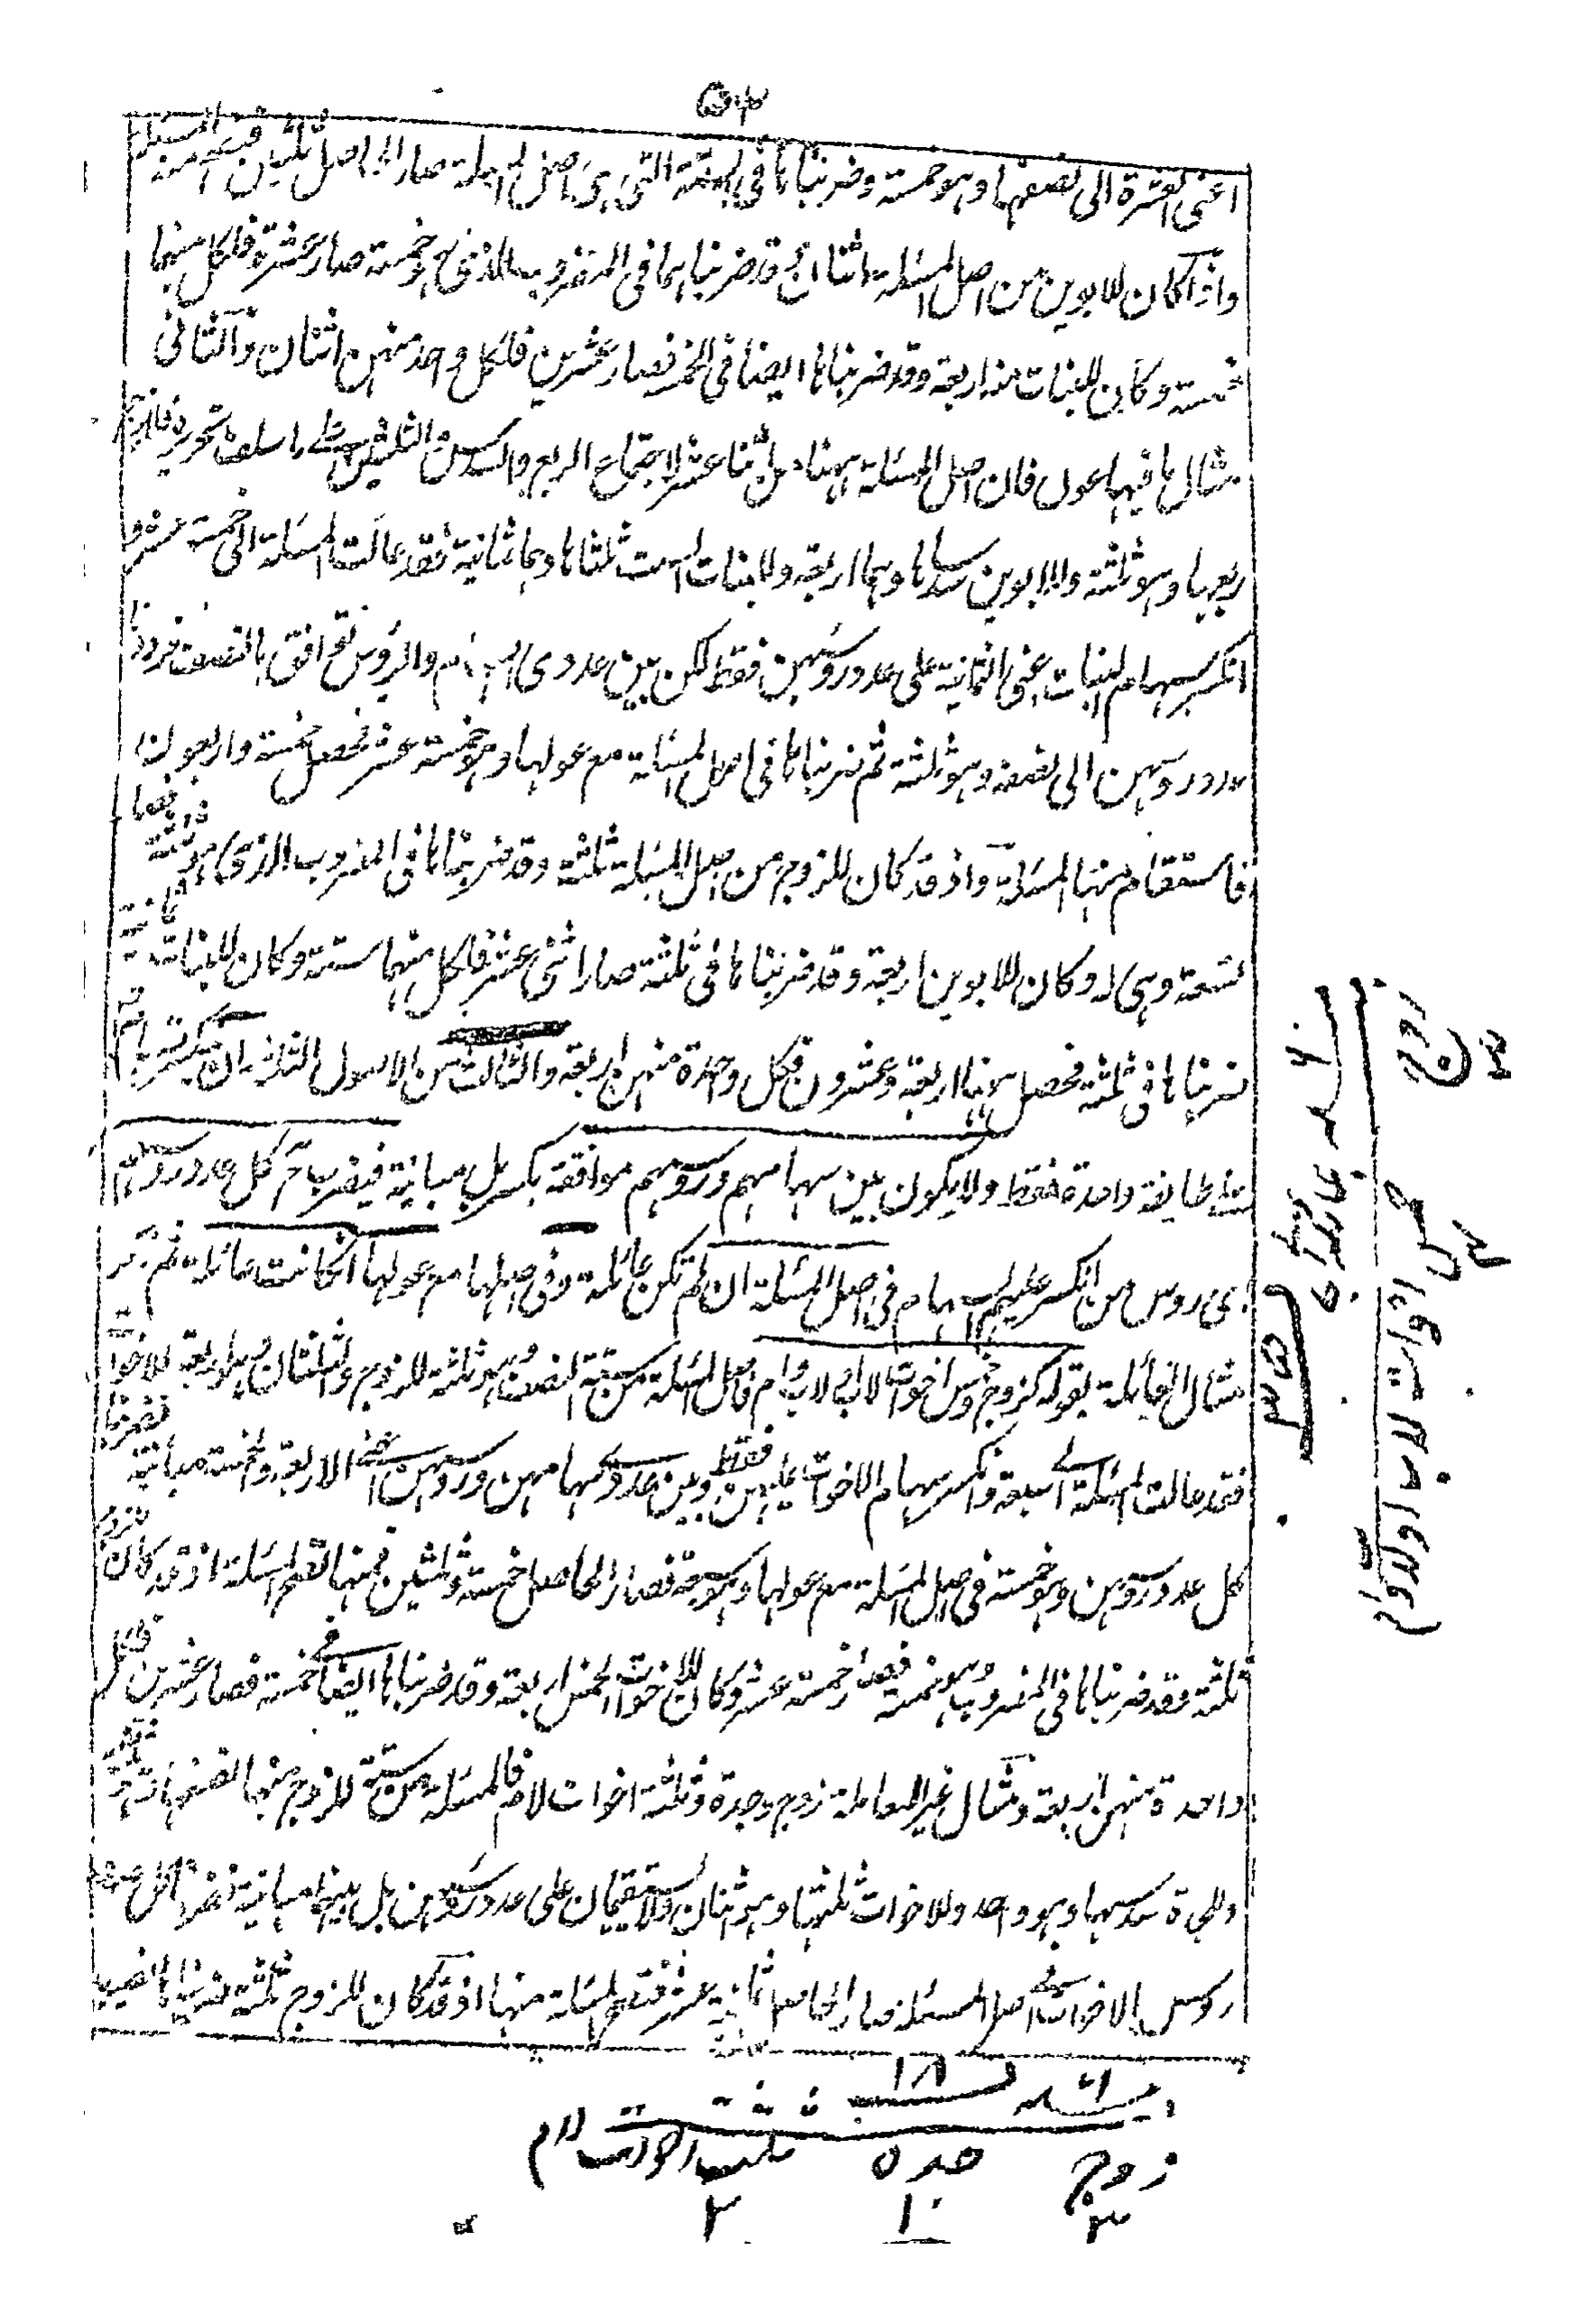 ٥٣
اعنی العشرة الی نصفها وهو خمسة وضربناها فی الستة التی هی اصل المسئلة صار الحاصل ثلثین فیصح منه المسئلة
واذا کان للابوین من اصل المسئلة اثنان وقد ضربناهما فی المضروب الذی هو خمسة صار عشرة فلکل منهما
خمسة وکان للبنات منه اربعة وقد ضربناها ایضا فی الخمسة فصار عشرین فلکل واحد منهن اثنان والثانی
مثال ما فیها عول فان اصل المسئلة ههنا من اثنا عشر لاجتماع الربع والسدسین والثلثین علی ما سلف تحریره فللزوج
ربعها وهو ثلثة وللابوین سدساها وهما اربعة وللبنات الست ثلثاها وهما ثمانیة فقد عالت المسئلة الی خمسة عشر و
انکسر سهام البنات اعنی الثمانیة علی عدد رؤسهن فقط لکن بین عددی السهام والرؤس توافق بالنصف فرددنا
عدد رؤسهن الی نصفه وهو ثلثة ثم ضربناها فی اصل المسئلة مع عولها وهو خمسة عشر فحصل خمسة واربعون
فاستقام منها المسئلة واذ قد کان للزوج من اصل المسئلة ثلثة وقد ضربناها فی المضروب الذی هو ثلثة فصار
تسعة وهی له وکان للابوین اربعة وقد ضربناها فی ثلثة صار اثنی عشر فلکل منهما ستة وکان للبنات ثمانیة
ضربناها فی ثلثة فحصل ههنا اربعة وعشرون فلکل واحدة منهن اربعة والثالث من الاصول الثلثة ان تنکسر سهامهم
علی طایفة واحدة فقط ولا یکون بین سهامهم ورؤسهم موافقة بکسر بل مباینة فیضرب ح کل عدد رؤسهم
ای رؤس من انکسر علیهم السهام فی اصل المسئلة ان لم تکن عائلة وفی اصلها مع عولها ان کانت عائلة ثم
مثال العائلة بقوله کزوج وخمس اخوات لاب او لاب وام فاصل المسئلة من ستة النصف وهو ثلثة للزوج والثلثان وهو اربعة للاخوات
فقد عالت المسئلة الی سبعة وانکسر سهام الاخوات علیهن فقط وبین عدد سهامهن ورؤسهن اعنی الاربعة والخمسة مباینة فضربنا
کل عدد رؤسهن وهو خمسة فی اصل المسئلة مع عولها وهو سبعة فصار الحاصل خمسة وثلثین فمنها تصح المسئلة اذ قد کان للزوج
ثلثة وقد ضربناها فی المضروب وهو خمسة فصار خمسة عشر وکان للاخوات الخمس اربعة وقد ضربناها ایضا فی خمسة فصار عشرین فلکل
واحدة منهن اربعة ومثال غیر العائلة زوج وجدة وثلثة اخوات لام فالمسئلة من ستة للزوج منها نصفها وهو ثلثة
وللجدة سدسها وهو واحد وللاخوات ثلثها وهو اثنان ولا یستقیمان علی عدد رؤسهن بل بینهما مباینة فضربنا کل عدد
رؤس الاخوات فی اصل المسئلة فصار الحاصل ثمانیة عشر فتصح المسئلة منها اذ قد کان للزوج ثلثة ضربناها
زوج
خمس اخوات لاب او لاب وام
۱۸
زوج جدة ثلثة اخوات لام
۳ ۱ ۲